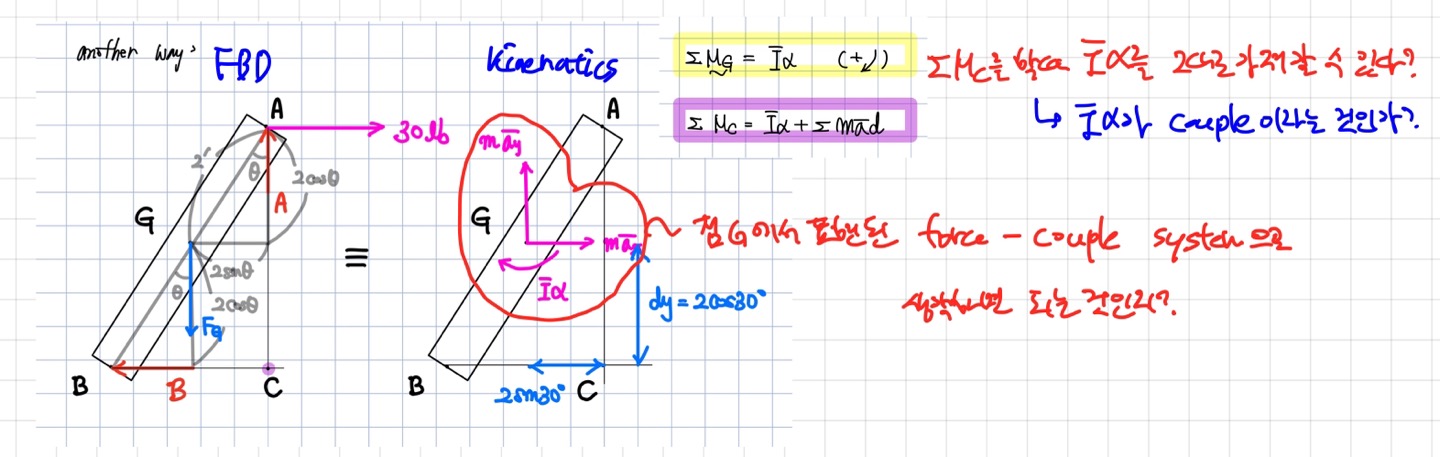 another way :
FBD
A
30 lb
2'
θ
2cosθ
A
G
2sinθ
θ
2cosθ
FG
B
B
C
≡
Kinematics
A
māy
G
māx
Īα
dy = 2cos30°
B
2sin30°
C
ΣMG = Īα (+↙)
ΣMC = Īα + Σmād
ΣMC를 Īα를 그대로 가져갈 수 있다?
↳ Īα가 couple이라는 것인가?
점 G에서 표현된 force - couple system으로
생각하면 되는 것인지?